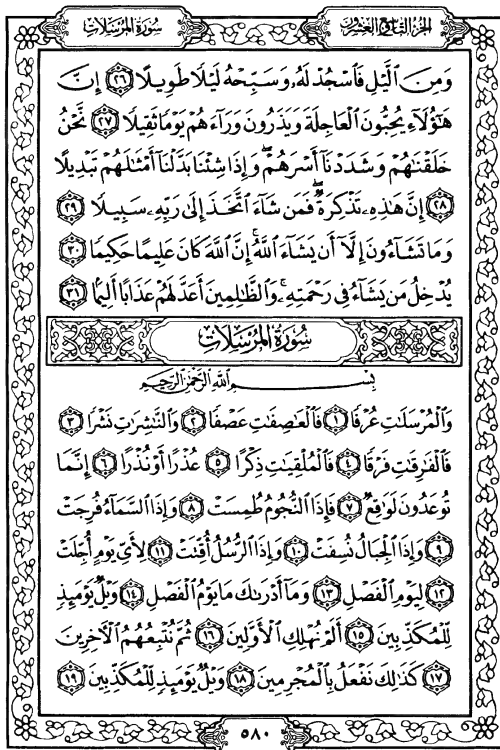 سُورَةُ المُرۡسَلَات
الجُزۡءُ التَّاسِعُ وَالعِشۡرُونَ
وَمِنَ ٱلَّيۡلِ فَٱسۡجُدۡ لَهُۥ وَسَبِّحۡهُ لَيۡلٗا طَوِيلًا ٢٦ إِنَّ
هَٰٓؤُلَآءِ يُحِبُّونَ ٱلۡعَاجِلَةَ وَيَذَرُونَ وَرَآءَهُمۡ يَوۡمٗا ثَقِيلٗا ٢٧ نَّحۡنُ
خَلَقۡنَٰهُمۡ وَشَدَدۡنَآ أَسۡرَهُمۡۖ وَإِذَا شِئۡنَا بَدَّلۡنَآ أَمۡثَٰلَهُمۡ تَبۡدِيلًا
٢٨ إِنَّ هَٰذِهِۦ تَذۡكِرَةٞۖ فَمَن شَآءَ ٱتَّخَذَ إِلَىٰ رَبِّهِۦ سَبِيلٗا ٢٩
وَمَا تَشَآءُونَ إِلَّآ أَن يَشَآءَ ٱللَّهُۚ إِنَّ ٱللَّهَ كَانَ عَلِيمًا حَكِيمٗا ٣٠
يُدۡخِلُ مَن يَشَآءُ فِي رَحۡمَتِهِۦۚ وَٱلظَّٰلِمِينَ أَعَدَّ لَهُمۡ عَذَابًا أَلِيمَۢا ٣١
سُورَةُ المُرۡسَلَات
بِسۡمِ ٱللَّهِ ٱلرَّحۡمَٰنِ ٱلرَّحِيمِ
وَٱلۡمُرۡسَلَٰتِ عُرۡفٗا ١ فَٱلۡعَٰصِفَٰتِ عَصۡفٗا ٢ وَٱلنَّٰشِرَٰتِ نَشۡرٗا ٣
فَٱلۡفَٰرِقَٰتِ فَرۡقٗا ٤ فَٱلۡمُلۡقِيَٰتِ ذِكۡرًا ٥ عُذۡرًا أَوۡ نُذۡرًا ٦ إِنَّمَا
تُوعَدُونَ لَوَٰقِعٞ ٧ فَإِذَا ٱلنُّجُومُ طُمِسَتۡ ٨ وَإِذَا ٱلسَّمَآءُ فُرِجَتۡ
٩ وَإِذَا ٱلۡجِبَالُ نُسِفَتۡ ١٠ وَإِذَا ٱلرُّسُلُ أُقِّتَتۡ ١١ لِأَيِّ يَوۡمٍ أُجِّلَتۡ
١٢ لِيَوۡمِ ٱلۡفَصۡلِ ١٣ وَمَآ أَدۡرَىٰكَ مَا يَوۡمُ ٱلۡفَصۡلِ ١٤ وَيۡلٞ يَوۡمَئِذٖ
لِّلۡمُكَذِّبِينَ ١٥ أَلَمۡ نُهۡلِكِ ٱلۡأَوَّلِينَ ١٦ ثُمَّ نُتۡبِعُهُمُ ٱلۡأٓخِرِينَ
١٧ كَذَٰلِكَ نَفۡعَلُ بِٱلۡمُجۡرِمِينَ ١٨ وَيۡلٞ يَوۡمَئِذٖ لِّلۡمُكَذِّبِينَ ١٩
٥٨٠